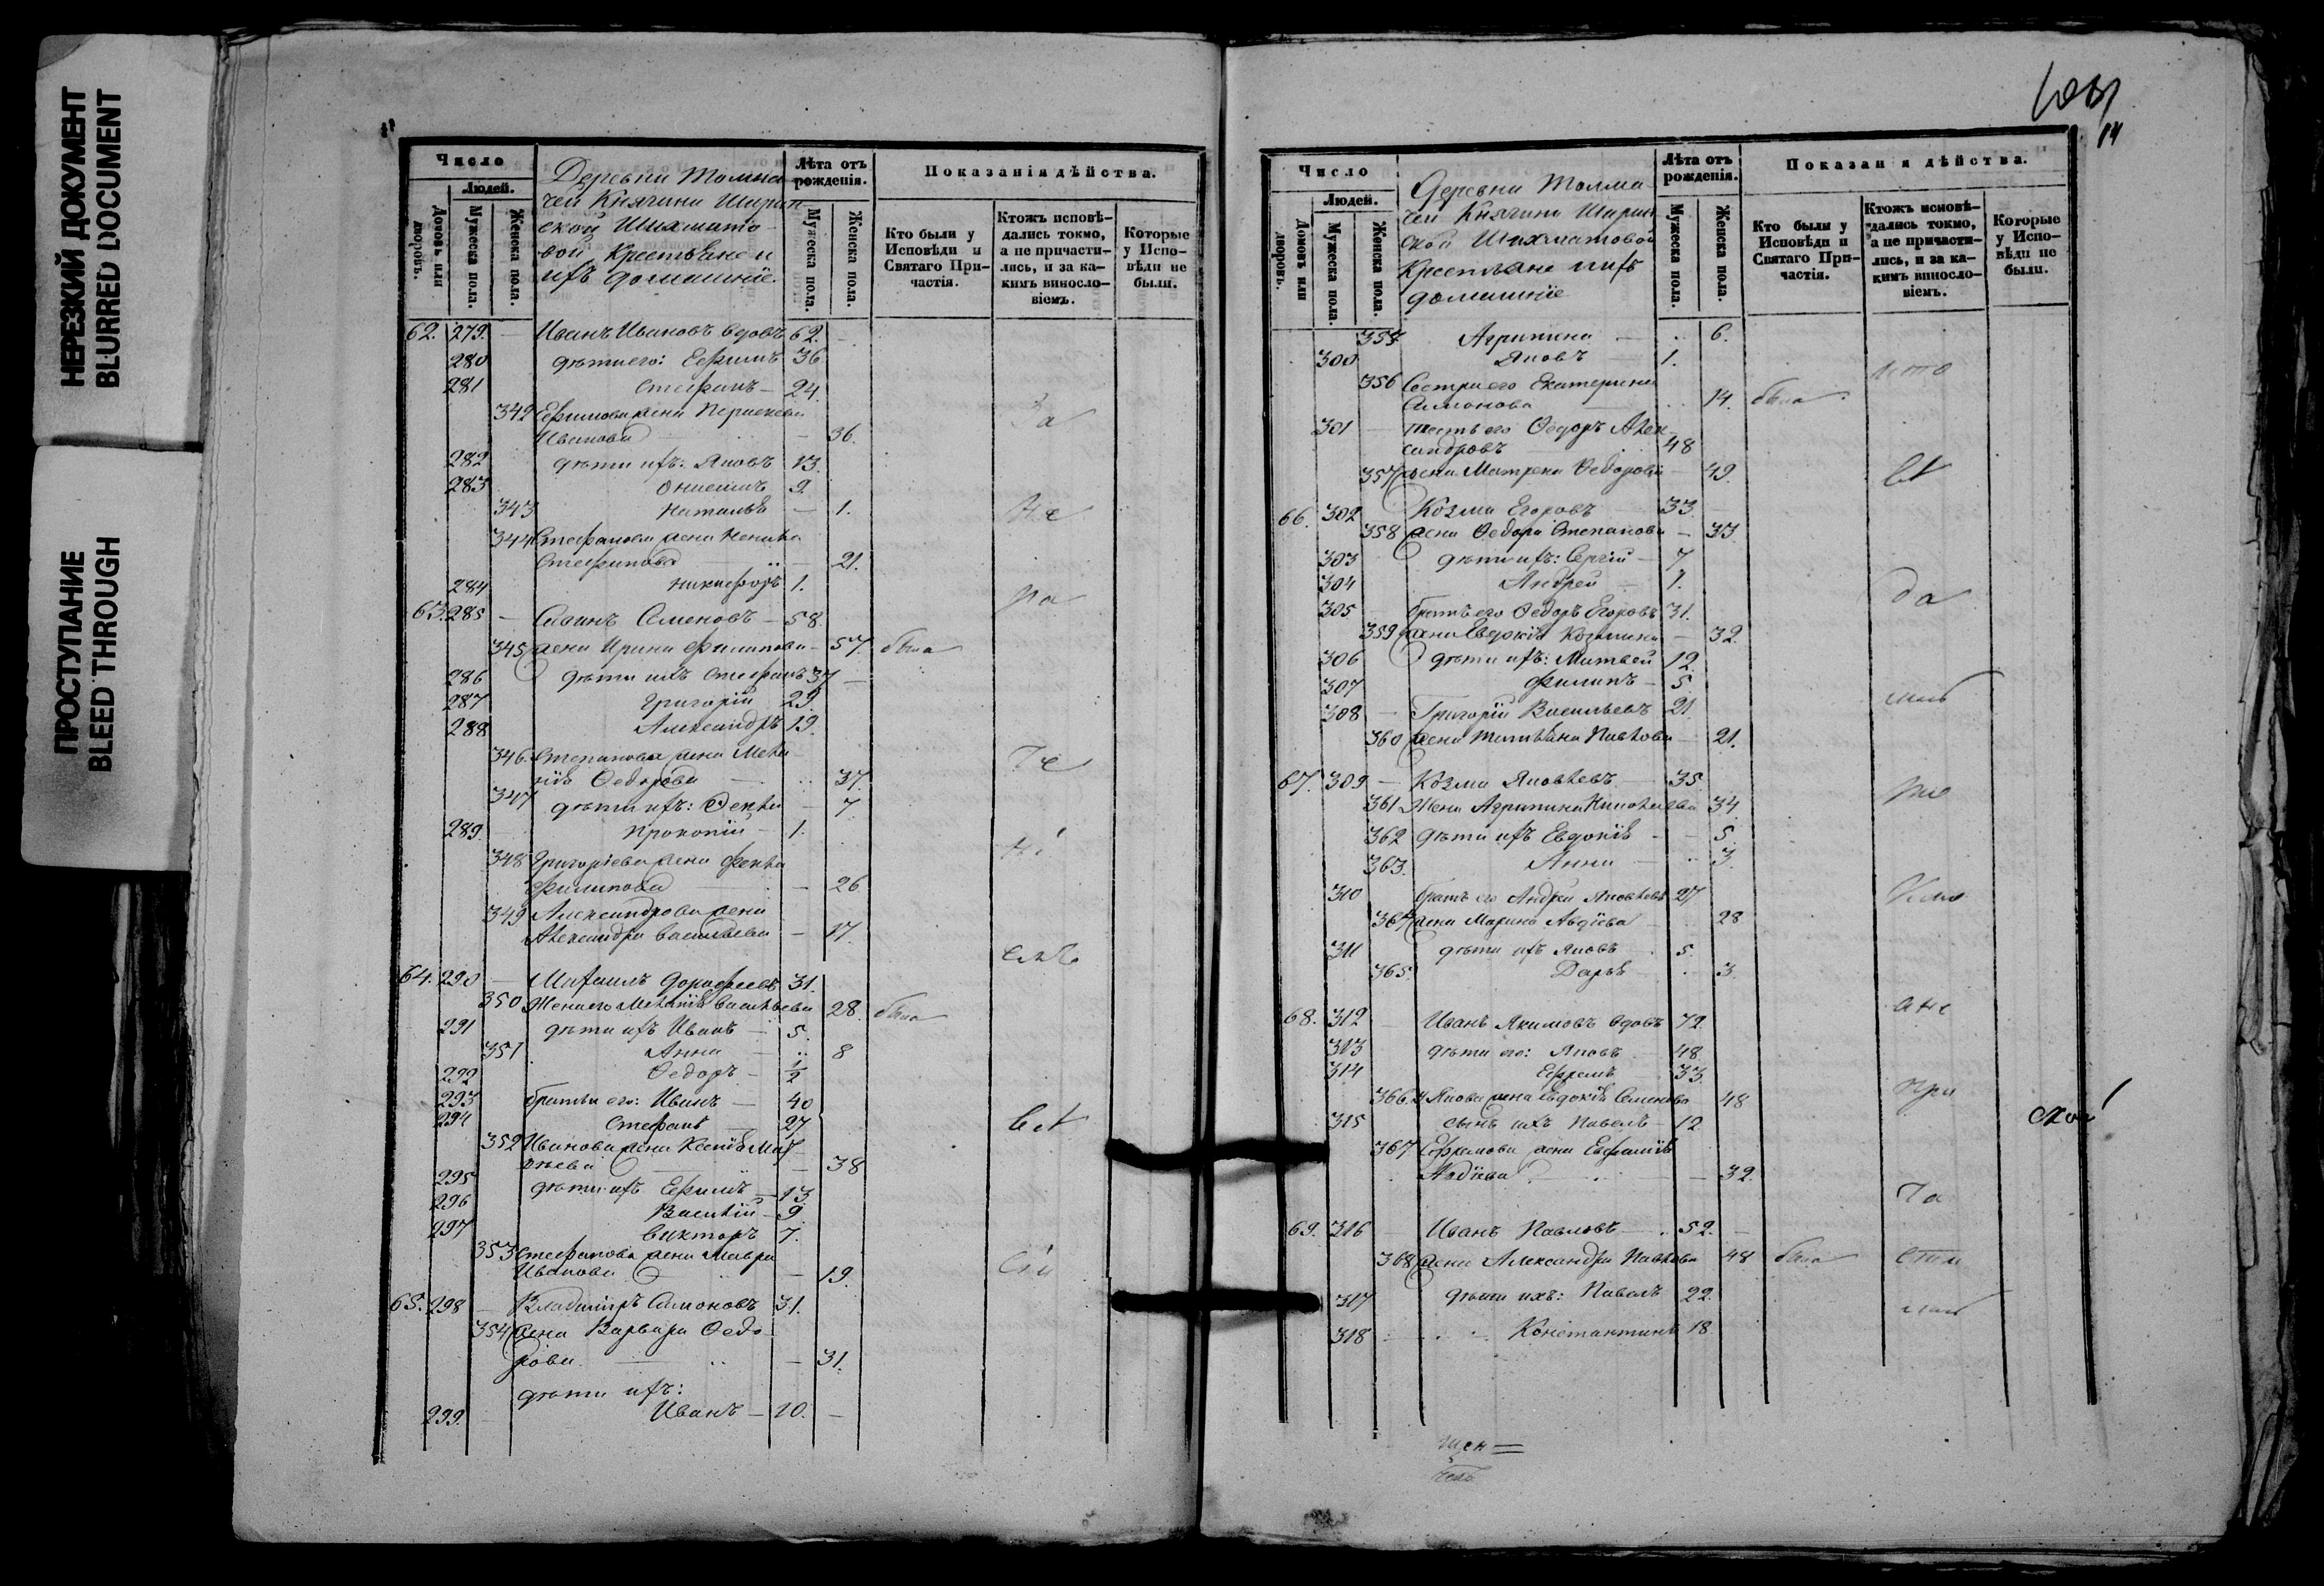 НЕРЕЗКИЙ ДОКУМЕНТ
BLURRED DOCUMENT
ПРОСТУПАНИЕ
BLEED THROUGH
Число
Людей.
Домовъ или дворовъ.
Мужеска пола.
Женска пола.
Деревни Толма
чей Княгини Ширин
ской Шихмато
вой Крестьяне и
ихъ домашніе.
Лѣта отъ рожденія.
Мужеска пола.
Женска пола.
Показанія дѣйства.
Кто были у Исповѣди и Святаго Причастія.
Ктожъ исповѣдались токмо, а не причастились, и за какимъ винословіемъ.
Которые у Исповѣди не были.
62. 279. Иванъ Ивановъ вдовъ 62.
280 дѣти его: Ефимъ 36
281 Стефанъ 24.
342 Ефимова жена
Иванова 36.
282 дѣти ихъ: Яковъ 13.
283 Онисимъ 9.
343 Наталья 1.
344 Стефанова жена
Стефанова 21.
284 Никифоръ 1.
63. 285 Савинъ Семеновъ 58.
345 жена Ирина Филипова 57. была
286 дѣти ихъ Стефанъ 37
287 Григорій 29.
288 Александръ 19.
346. Степанова жена Мела
нія Федорова 37.
347 дѣти ихъ: Фекла 7.
289. Прокопій 1.
348 Григоріева жена Фекла
Филипова 26
349 Александрова жена
Александра Васильева 17.
64. 290 Михаилъ Дорофеевъ 31.
350 Жена его Меланія Васильева 28. была
291 дѣти ихъ Иванъ 5.
351 Анна 8
292 Федоръ 1/2
293 братья его: Иванъ 40
294 Стефанъ 27
352 Иванова жена Ксенія Мат
вѣева 38
295 дѣти ихъ Ефимъ 13
296 Василій 9.
297 Викторъ 7.
353 Стефанова жена Мавра
Иванова 19.
65. 298 Владиміръ Симоновъ 31.
354 жена Варвара Федо
рова 31.
дѣти ихъ:
299. Иванъ 10.
14
Число
Людей.
Домовъ или дворовъ.
Мужеска пола.
Женска пола.
Деревни Толма
чей Княгини Ширин
ской Шихматовой
Крестьяне и ихъ
домашніе
Лѣта отъ рожденія.
Мужеска пола.
Женска пола.
Показанія дѣйства.
Кто были у Исповѣди и Святаго Причастія.
Ктожъ исповѣдались токмо, а не причастились, и за какимъ винословіемъ.
Которые у Исповѣди не были.
355 Агрипина 6.
300 Яковъ 1.
356 Сестра его Екатерина
Симонова 14. была
301 тесть его Федоръ Алек
сандровъ 48
357 жена Матрена Федорова 49.
66. 302 Козма Егоровъ 33
358 жена Федора Степанова 33
303 дѣти ихъ: Сергій 7
304 Андрей 1.
305 братъ его Федоръ Егоровъ 31.
359 жена Евдокія Козмина 32.
306 дѣти ихъ: Матвей 12.
307 Филипъ 5
308 Григорій Васильевъ 21
360 жена Татьяна Павлова 21.
67. 309 Козма Яковлевъ 35.
361 Жена Агрипина 34.
362 дѣти ихъ Евдокія 5.
363. Анна 3.
310 братъ его Андрей Яковлевъ 27
364 жена Марина Авдіева 28
311 дѣти ихъ Яковъ 5.
365. Дарья 3.
68. 312 Иванъ Якимовъ вдовъ 72
313 дѣти его: Яковъ 48.
314 Ефремъ 33.
366. Якова жена Евдокія Семенова 48
315 сынъ ихъ Павелъ 12
367 Ефремова жена Евфимія
Авдіева 32.
69. 316 Иванъ Павловъ 52.
368 жена Александра Павлова 48 была
317 дѣти ихъ: Павелъ 22.
318 Константинъ 18